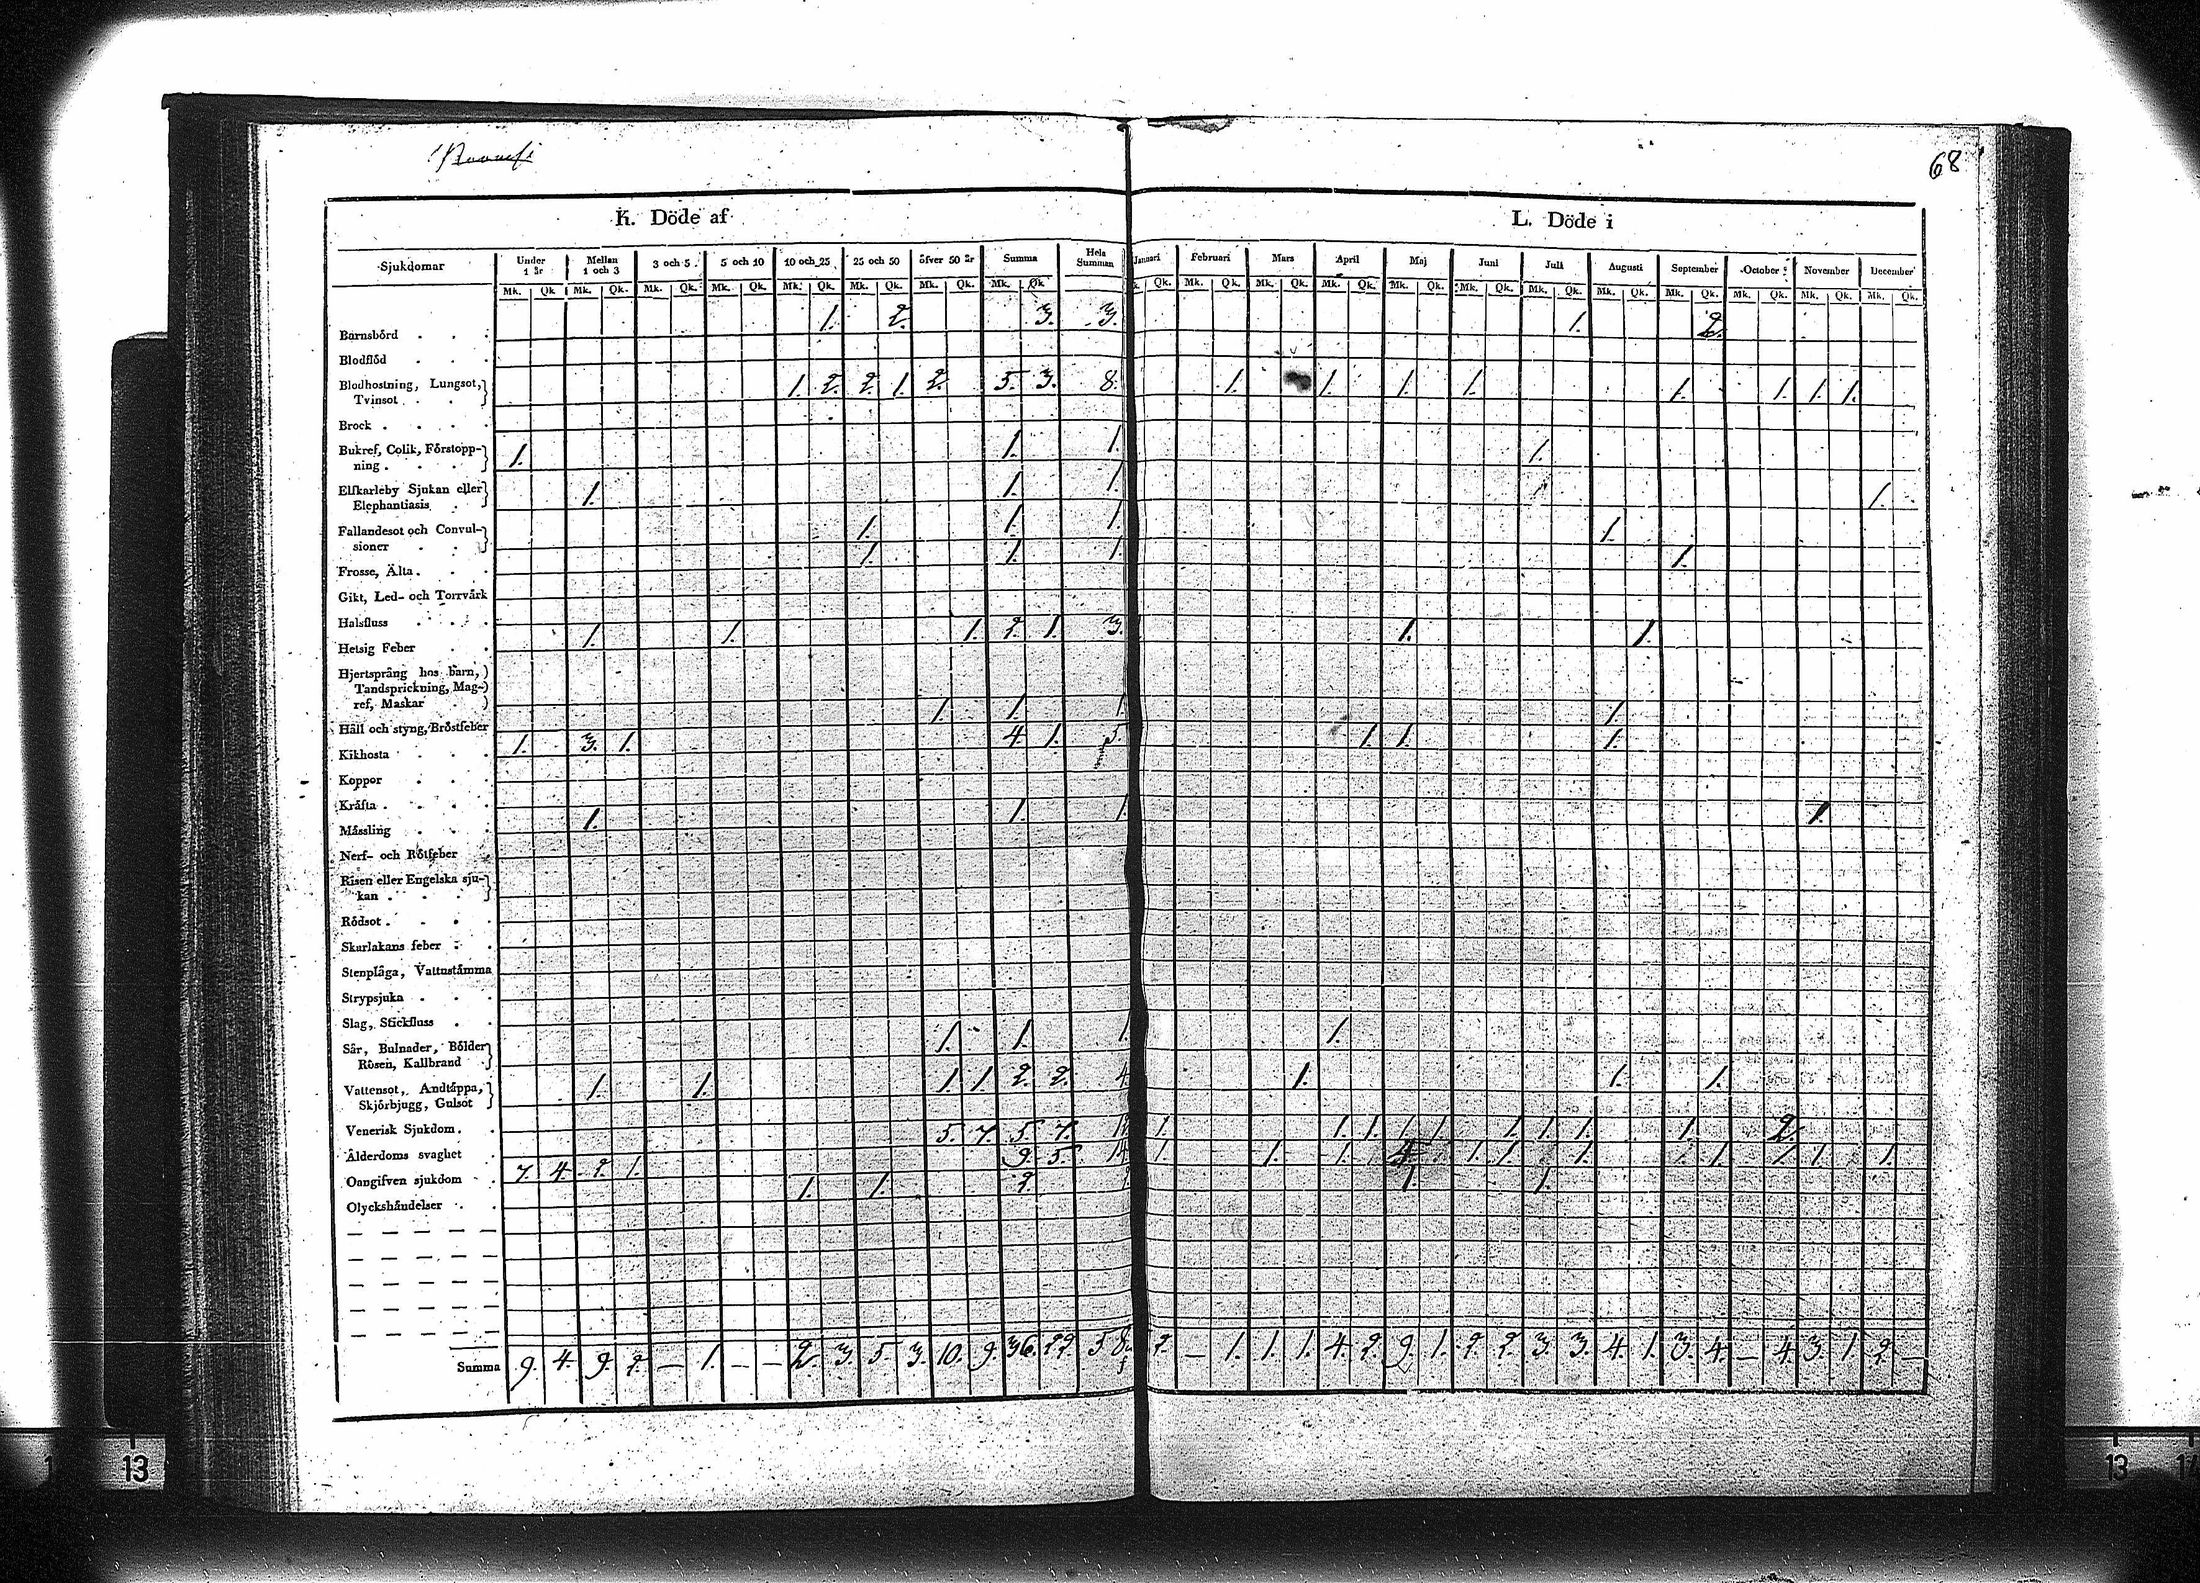 68
K. Döde af
L. Döde i
Sjukdomar Under 1 år Mellan 1 och 3 3 och 5 5 och 10 10 och 25 25 och 50 öfver 50 år Summa Hela Summan Januari Februari Mars April Maj Juni Juli Augusti September October November December
Mk. Qk. Mk. Qk. Mk. Qk. Mk. Qk. Mk. Qk. Mk. Qk. Mk. Qk. Mk. Qk. Qk. Mk. Qk. Mk. Qk. Mk. Qk. Mk. Qk. Mk. Qk. Mk. Qk. Mk. Qk. Mk. Qk. Mk. Qk. Mk. Qk. Mk. Qk.
Barnsbörd 1. 2. 3. 3. 1. 2.
Blodflöd
Blodhostning, Lungsot, Tvinsot 1. 2. 2. 1. 2. 5. 3. 8. 1. 1. 1. 1. 1. 1. 1. 1.
Brock
Bukref, Colik, Förstoppning 1. 1. 1. 1.
Elfkarleby Sjukan eller Elephantiasis 1. 1. 1. 1.
Fallandesot och Convulsioner 1. 1. 1. 1.
Frosse, Älta 1. 1. 1. 1.
Gikt, Led- och Torrvärk
Halsfluss
Hetsig Feber 1. 1. 1. 2. 1. 3. 1. 1.
Hjertsprång hos barn, Tandsprickning, Magref, Maskar
Håll och styng, Bröstfeber 1. 1. 1. 1.
Kikhosta 1. 3. 1. 4. 1. 5. 1. 1. 1.
Koppor
Kräfta
Mässling 1. 1. 1. 1.
Nerf- och Rötfeber
Risen eller Engelska sjukan
Rödsot
Skarlakans feber
Stenplåga, Vattustämma
Strypsjuka
Slag, Stickfluss
Sår, Bulnader, Bölder Rosen, Kallbrand 1. 1. 1. 1.
Vattensot, Andtäppa, Skjörbjugg, Gulsot 1. 1. 1. 1. 2. 2. 4. 1. 1. 1.
Venerisk Sjukdom
Ålderdoms svaghet 5. 7. 5. 7. 1. 1. 1. 1. 1. 1. 1. 1. 1. 2.
Oangifven sjukdom 7. 4. 2. 1. 9. 5. 14 1. 1. 1. 4. 1. 1. 1. 1. 1. 1. 1. 1.
Olyckshändelser 1. 1. 2. 1. 1.
Summa 9. 4. 9. 2. — 1. — — 2. 3. 5. 3. 10. 9. 36. 22. 58. 2. — 1. 1. 1. 4. 2. 9. 1. 2. 2. 3. 3. 4. 1. 3. 4. — 4. 3. 1. 2. —
13
13